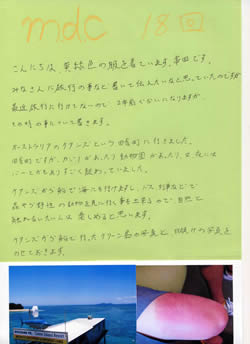 mdc 18回
こんにちは、黄緑色の服を着ています、本田です。
みなさんに旅行の事など書いて伝えたいなと思っていたのですが
最近旅行に行けてないので 2年前ぐらいになりますが
その時の事について書きます。
オーストラリアのケアンズという田舎町に行きました。
田舎町ですが、カジノがあったり動物園があったり、又、夜には
バーとかもありすごく賑わっていました。
ケアンズから船で海にも行けますし、バス、列車などで
森やら野性の動物を見に行く事も出来るので、自然と
触れ合いたい人は楽しめると思います。
ケアンズから船で行った グリーン島の写真と、日焼けの写真を
のせておきます。